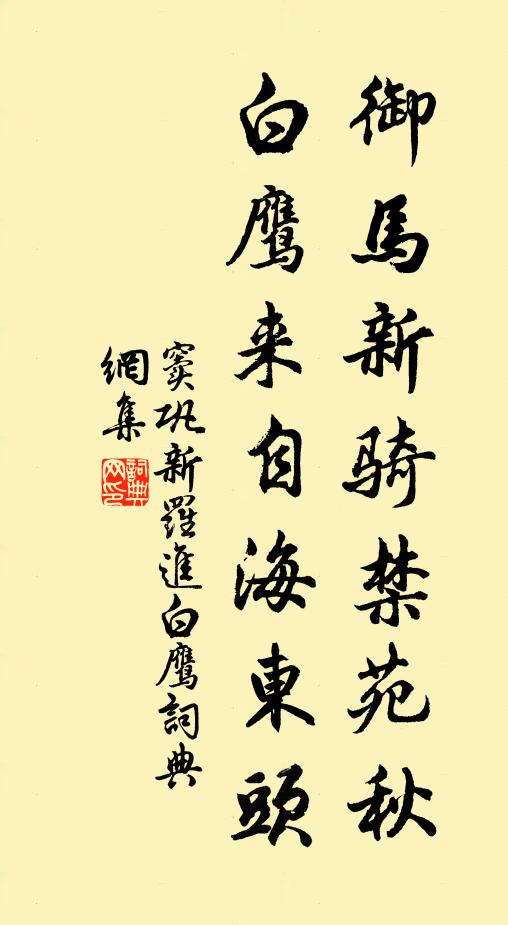 御馬新騎禁苑秋
白鹰来自海東頭
窦巩新羅進白鹰詞典
網集
詞典
网印